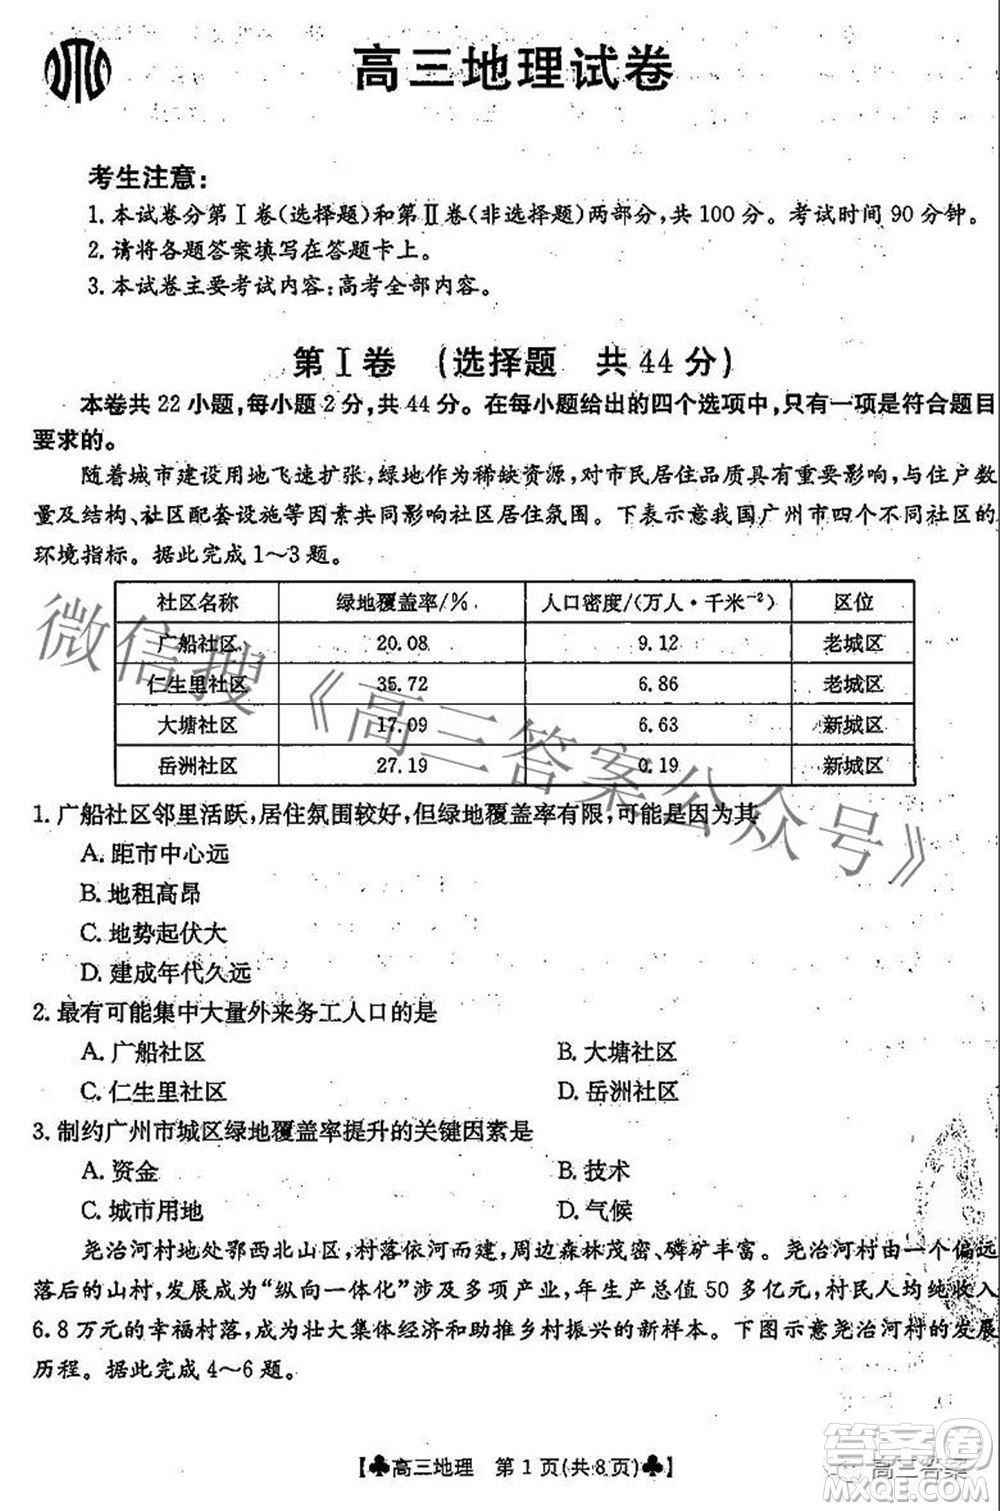 高三地理试卷
考生注意:
1.本试卷分第Ⅰ卷(选择题)和第Ⅱ卷(非选择题)两部分,共100分。考试时间90分钟。
2.请将各题答案填写在答题卡上。
3.本试卷主要考试内容:高考全部内容。
第Ⅰ卷 (选择题 共44分)
本卷共22小题,每小题2分,共44分。在每小题给出的四个选项中,只有一项是符合题目
要求的。
随着城市建设用地飞速扩张,绿地作为稀缺资源,对市民居住品质具有重要影响,与住户数
量及结构、社区配套设施等因素共同影响社区居住氛围。下表示意我国广州市四个不同社区的
环境指标。据此完成1~3题。
社区名称 绿地覆盖率/% 人口密度/(万人·千米⁻²) 区位
广船社区 20.08 9.12 老城区
仁生里社区 35.72 6.86 老城区
大塘社区 17.09 6.63 新城区
岳洲社区 27.19 0.19 新城区
1.广船社区邻里活跃,居住氛围较好,但绿地覆盖率有限,可能是因为其
A.距市中心远
B.地租高昂
C.地势起伏大
D.建成年代久远
2.最有可能集中大量外来务工人口的是
A.广船社区 B.大塘社区
C.仁生里社区 D.岳洲社区
3.制约广州市城区绿地覆盖率提升的关键因素是
A.资金 B.技术
C.城市用地 D.气候
尧治河村地处鄂西北山区,村落依河而建,周边森林茂密、磷矿丰富。尧治河村由一个偏远
落后的山村,发展成为“纵向一体化”涉及多项产业,年生产总值50多亿元,村民人均纯收入
6.8万元的幸福村落,成为壮大集体经济和助推乡村振兴的新样本。下图示意尧治河村的发展
历程。据此完成4~6题。
【♣高三地理 第1页(共8页)♣】
微信搜《高三答案公众号》
答案圈
高三答案
MXQE.COM